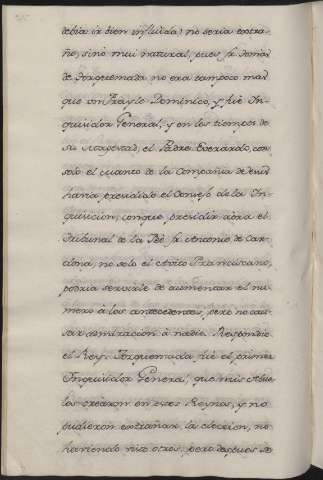 debia ir bien influida) no seria extra-
ño, sino mui natural, pues fr. Tomas
de Torquemada no era tampoco mas
que un Frayle Dominico, y fué In-
quisidor General, y en los tiempos de
su Magestad, el Padre Everardo, con
solo el manto de la Compañia de Jesus
havia presidido el Consejo de la In-
quisicion, conque presidir aora el
Tribunal de la Fé fr. Antonio de Car-
dona, no solo el Avito Franciscano,
podria servirle de aumentar el nu-
mero á los antecedentes, pero no cau-
sar admiracion á nadie. Respondio
el Rey: Torquemada fué el primer
Inquisidor General, que mis Abue-
los crearon en estos Reynos, y no
pudieron extrañar la eleccion, no
haviendo visto otros, pero despues se